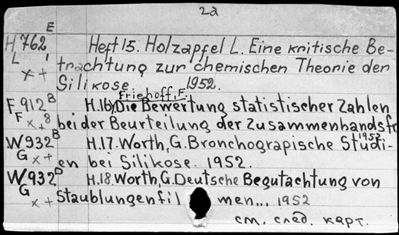 22
E
H 762 Heft 15. Holzapfel L. Eine kritische Be-
L 1 trachtung zur chemischen Theorie der
x + Silikose 1952.
Friehoff, F.
F 912 B H.16) Die Bewertung statistischer Zahlen
F x + 8 bei der Beurteilung der Zusammenhandsfr
W 932 B H.17. Worth, G. Bronchograpische Studi- 1952
G x + en bei Silikose. 1952.
W 932 D H.18. Worth, G. Deutsche Begutachtung von
G x + Staublungenfil men... 1952
см. след. карт.